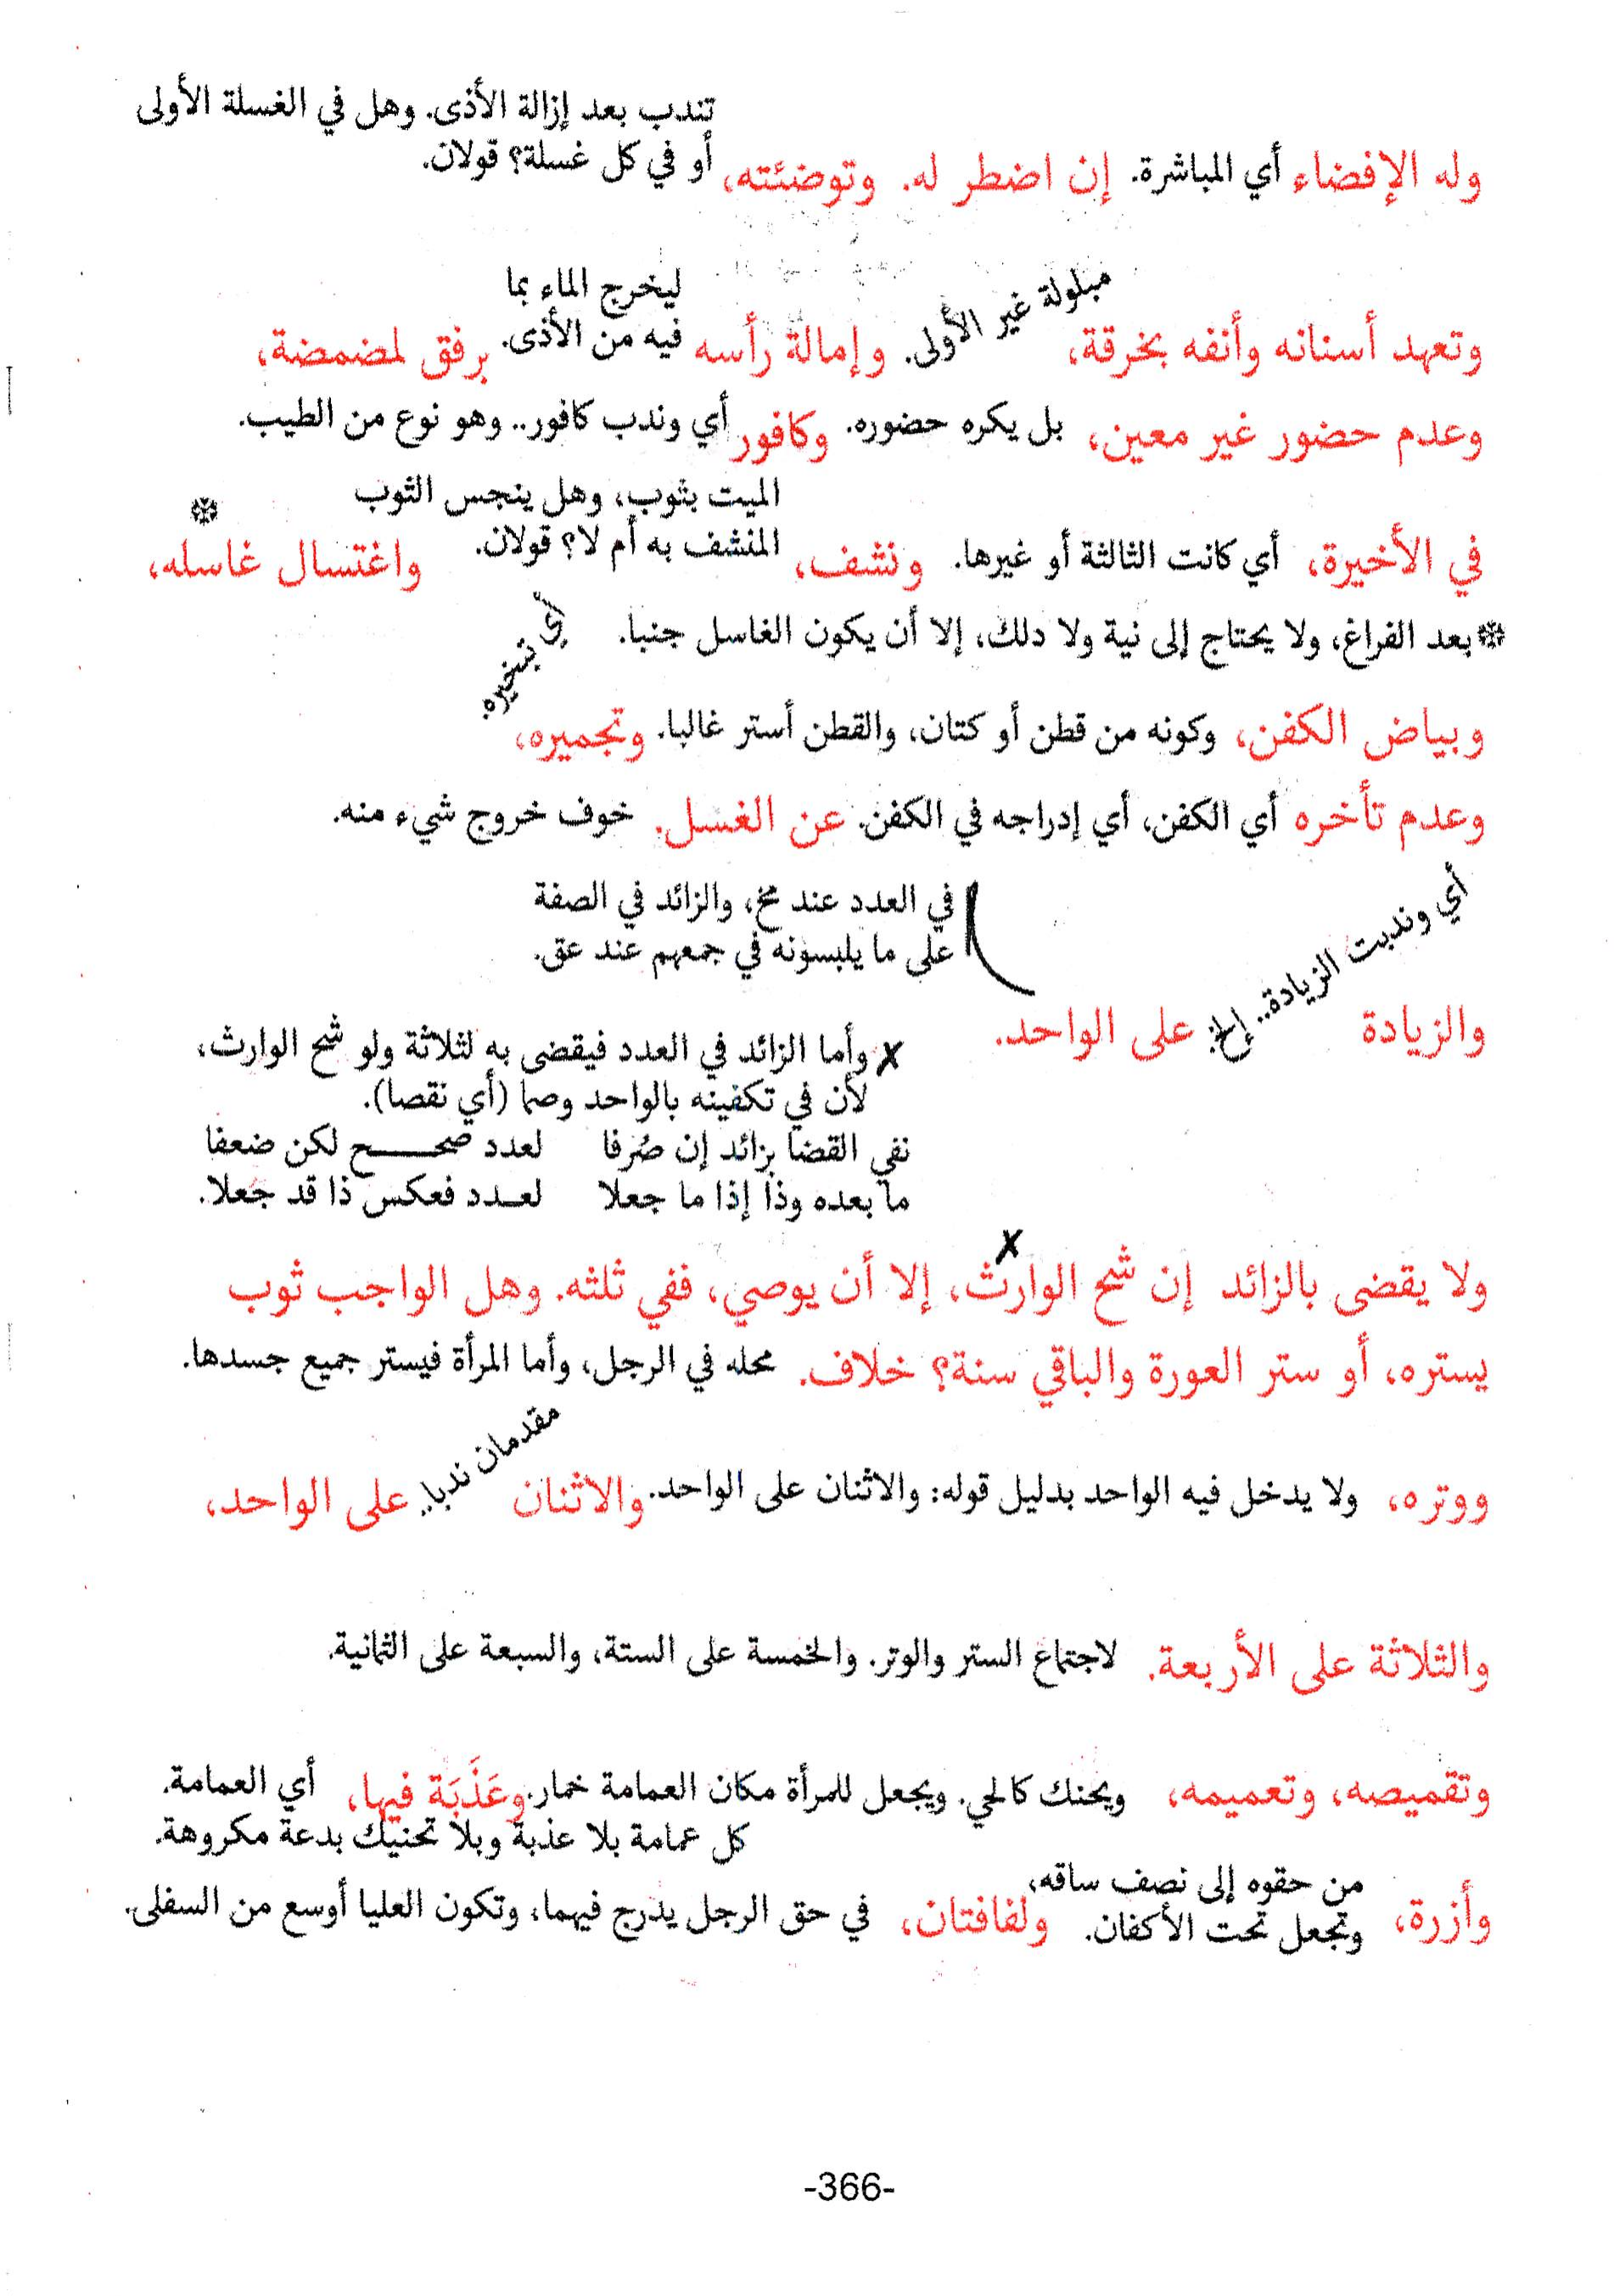 تندب بعد إزالة الأذى. وهل في الغسلة الأولى
وله الإفضاء أي المباشرة. إن اضطر له. وتوضئته، أو في كل غسلة؟ قولان.
مبلولة غير الأولى.
ليخرج الماء بما
وتعهد أسنانه وأنفه بخرقة، وإمالة رأسه فيه من الأذى. برفق لمضمضة،
وعدم حضور غير معين، بل يكره حضوره. وكافور أي وندب كافور.. وهو نوع من الطيب.
الميت بثوب، وهل ينجس الثوب
في الأخيرة، أي كانت الثالثة أو غيرها. ونشف، المنشف به أم لا؟ قولان. واغتسال غاسله، ❆
❆ بعد الفراغ، ولا يحتاج إلى نية ولا دلك، إلا أن يكون الغاسل جنبا.
أي تبخيره.
وبياض الكفن، وكونه من قطن أو كتان، والقطن أستر غالبا. وتجميره،
وعدم تأخره أي الكفن، أي إدراجه في الكفن. عن الغسل. خوف خروج شيء منه.
في العدد عند مخ، والزائد في الصفة
على ما يلبسونه في جمعهم عند عق.
أي وندبت الزيادة.. إلخ:
والزيادة على الواحد.
✗ وأما الزائد في العدد فيقضى به لثلاثة ولو شح الوارث،
لأن في تكفينه بالواحد وصما (أي نقصا).
نفي القضا بزائد إن صُرفا لعدد صحـــح لكن ضعفا
ما بعده وذا إذا ما جعلا لعـدد فعكس ذا قد جعلا.
✗
ولا يقضى بالزائد إن شح الوارث، إلا أن يوصي، ففي ثلثه. وهل الواجب ثوب
يستره، أو ستر العورة والباقي سنة؟ خلاف. محله في الرجل، وأما المرأة فيستر جميع جسدها.
مقدمان ندبا..
ووتره، ولا يدخل فيه الواحد بدليل قوله: والاثنان على الواحد. والاثنان على الواحد،
والثلاثة على الأربعة. لاجتماع الستر والوتر. والخمسة على الستة، والسبعة على الثمانية.
وتقميصه، وتعميمه، ويحنك كالحي. ويجعل للمرأة مكان العمامة خمار. وعَذَبَة فيها، أي العمامة.
كل عمامة بلا عذبة وبلا تحنيك بدعة مكروهة.
من حقوه إلى نصف ساقه،
وأزرة، وتجعل تحت الأكفان. ولفافتان، في حق الرجل يدرج فيهما، وتكون العليا أوسع من السفلى.
-366-